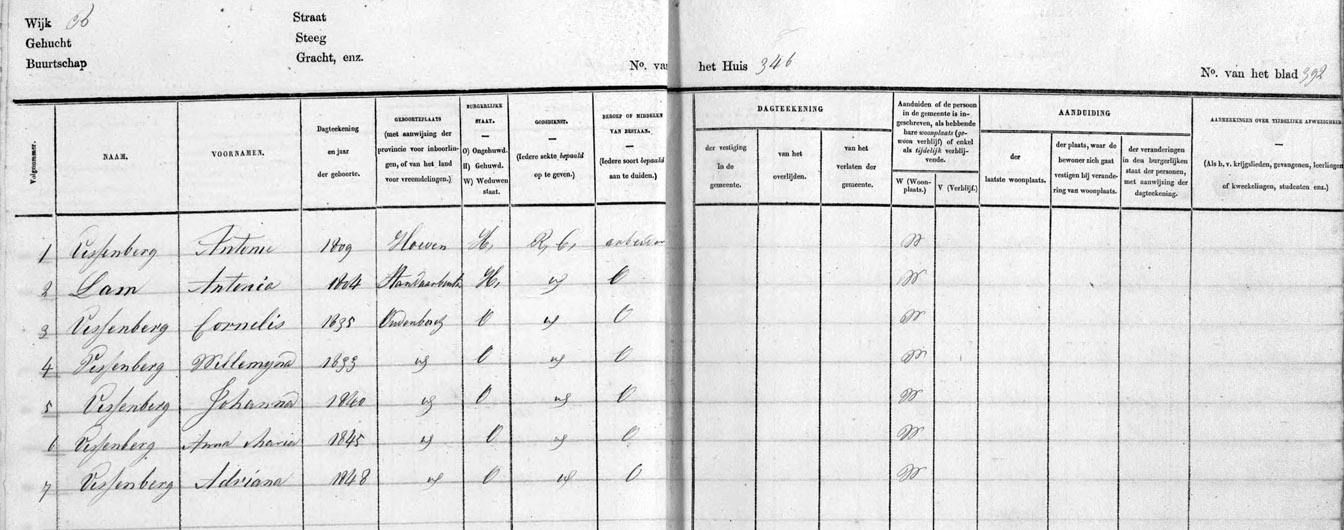 Wijk B
Gehucht
Buurtschap
Straat
Steeg
Gracht, enz.
No. van het Huis 346
No. van het blad 392
Volgnummer.
NAAM.
VOORNAMEN.
Dagteekening
en jaar
der geboorte.
GEBOORTEPLAATS
(met aanwijzing der
provincie voor inboorlin-
gen, of van het land
voor vreemdelingen.)
BURGERLIJKE
STAAT.
O) Ongehuwd.
H) Gehuwd.
W) Weduwen
staat.
GODSDIENST.
(Iedere sekte bepaald
op te geven.)
BEROEP OF MIDDELEN
VAN BESTAAN.
(Iedere soort bepaald
aan te duiden.)
DAGTEEKENING
der vestiging
in de
gemeente.
van het
overlijden.
van het
verlaten der
gemeente.
Aanduiden of de persoon
in de gemeente is in-
geschreven, als hebbende
hare woonplaats (ge-
woon verblijf) of enkel
als tijdelijk verblij-
vende.
W (Woon-
plaats.)
V (Verblijf.)
AANDUIDING
der
laatste woonplaats.
der plaats, waar de
bewoner zich gaat
vestigen bij verande-
ring van woonplaats.
der veranderingen
in den burgerlijken
staat der personen,
met aanwijzing der
dagteekening.
AANMERKINGEN OVER TIJDELIJKE AFWEZIGHEID
(Als b, v. krijgslieden, gevangenen, leerlingen
of kweekelingen, studenten enz.)
1 Vessenberg Antonie 1809 Hoeven H, R, C, arbeider W
2 Lam Antonia 1804 H, " O W
3 Vessenberg Cornelis 1835 Oudenbosch O " O W
4 Vessenberg Willemyna 1833 " O " O W
5 Vessenberg Johanna 1840 " O " O W
6 Vessenberg Anna Maria 1845 " O " O W
7 Vessenberg Adriana 1848 " O " O W